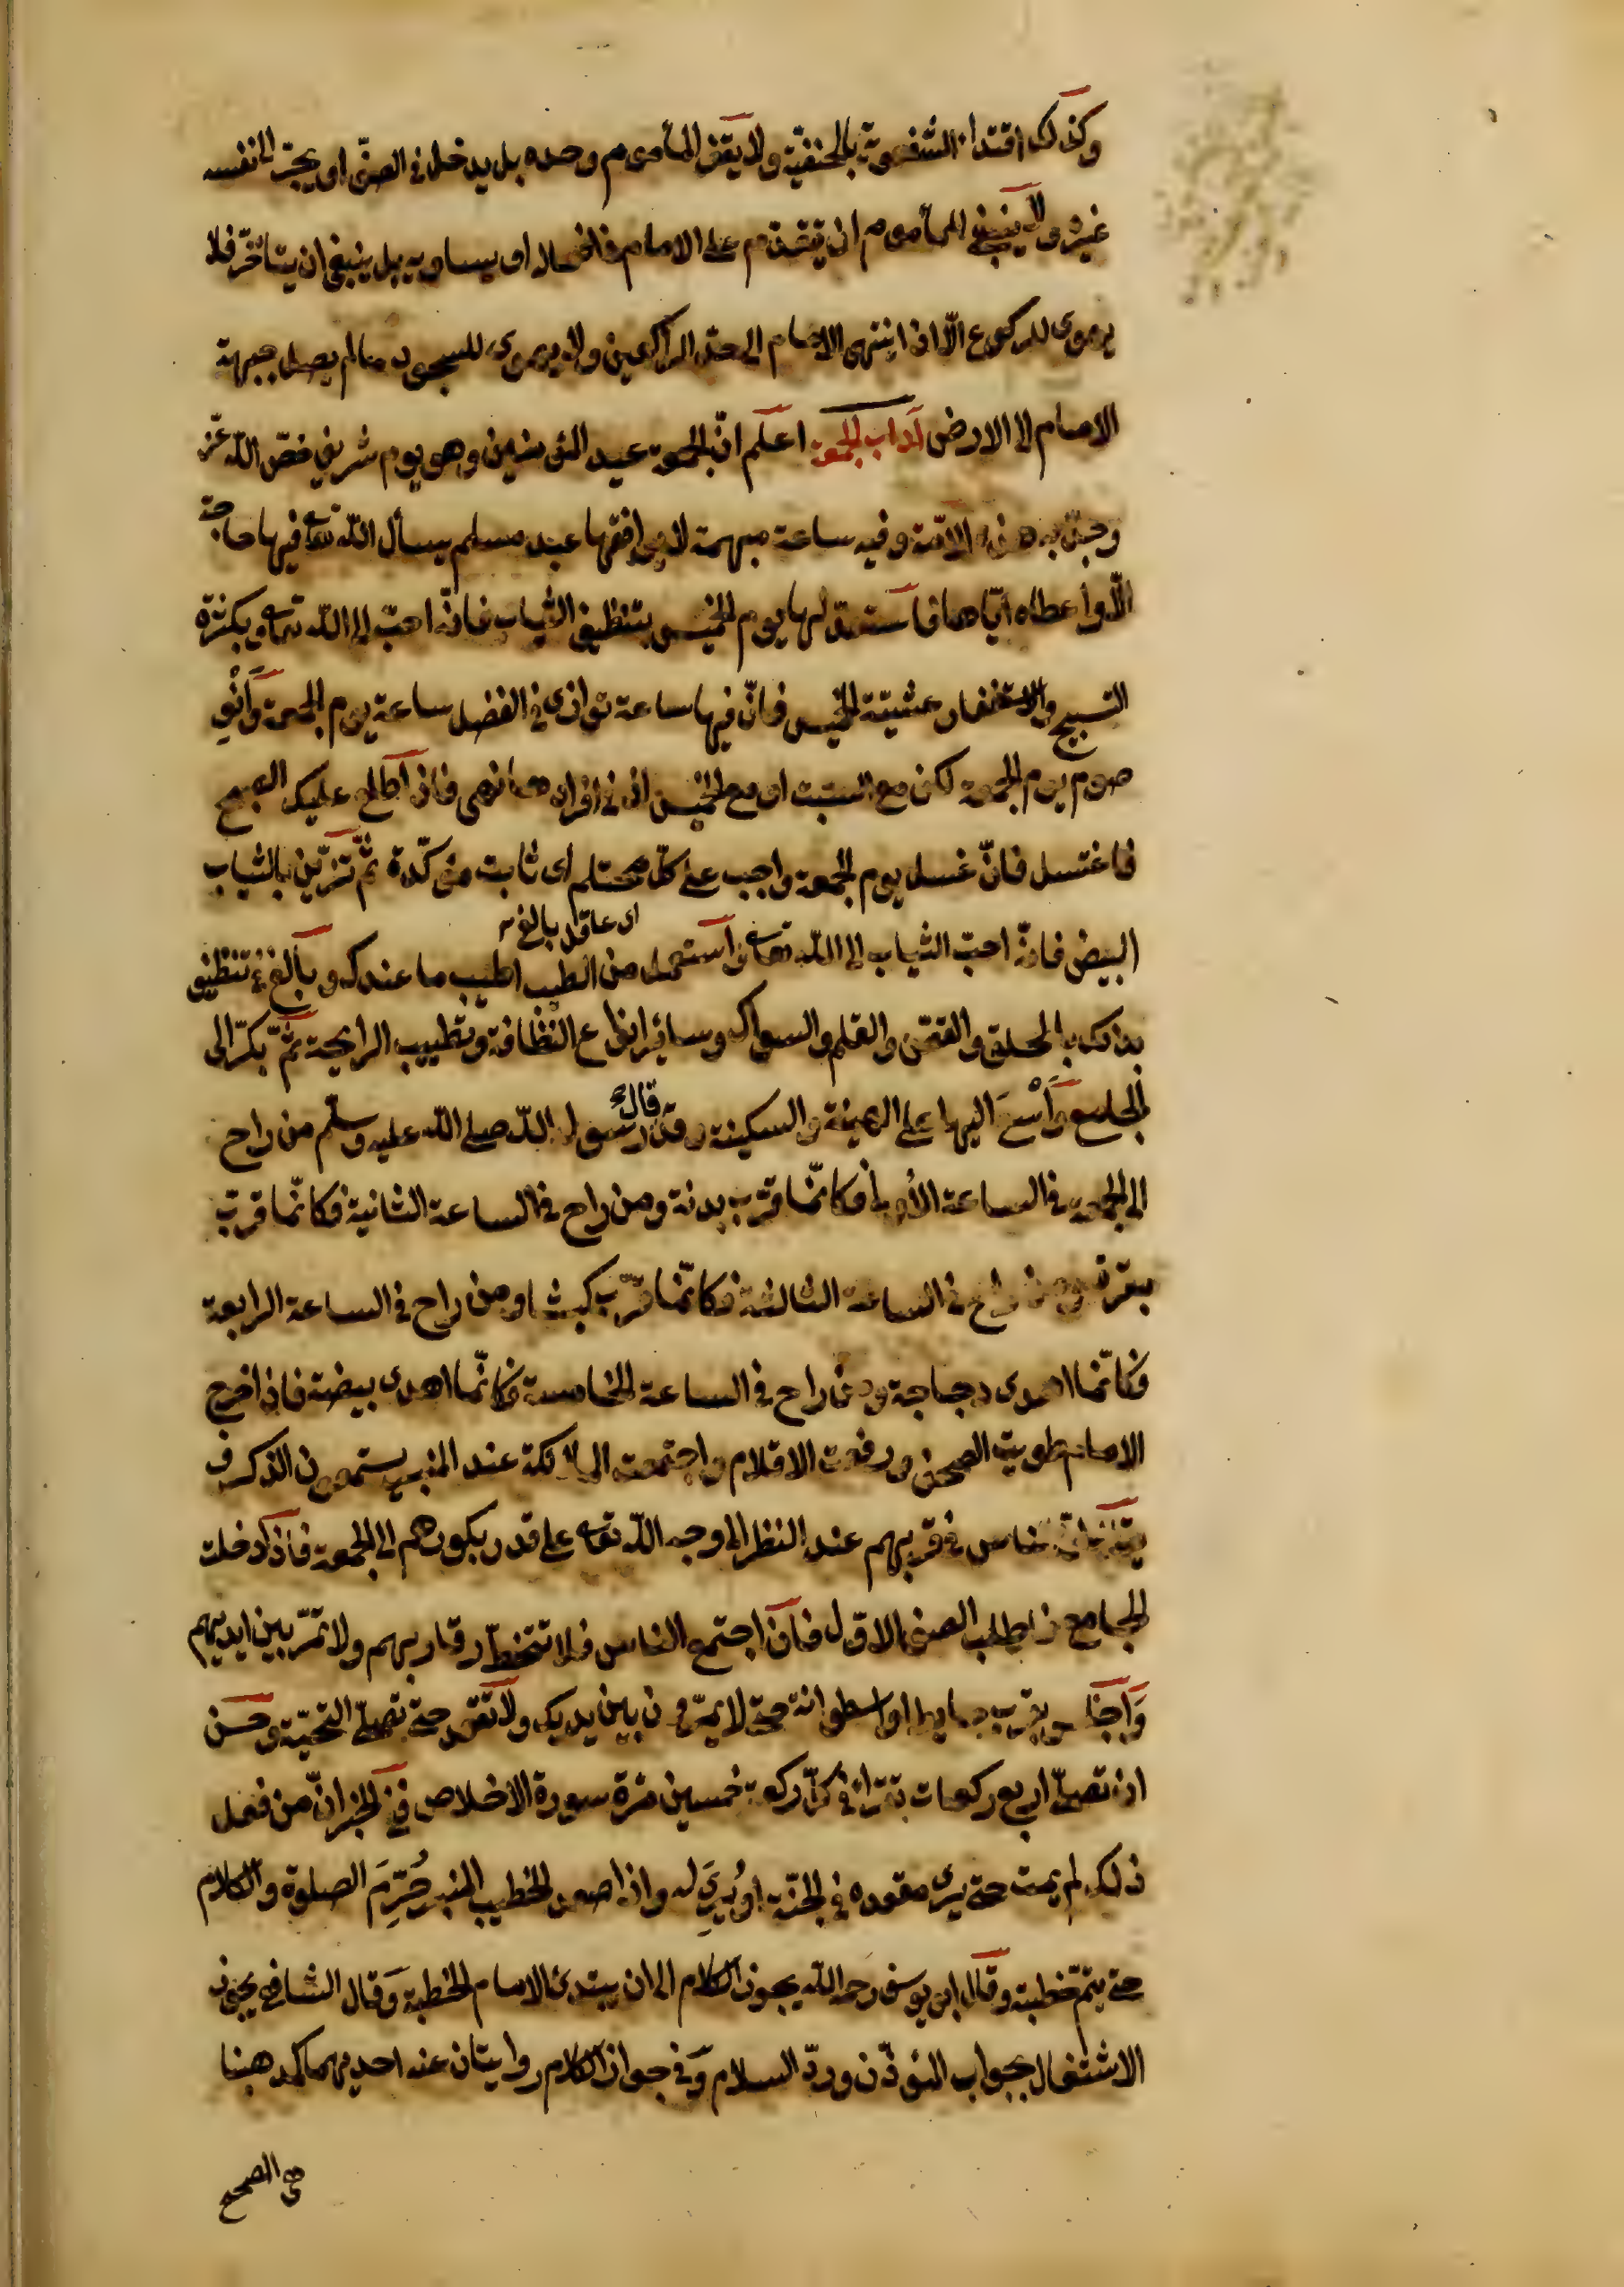 وكذلك اقتداء الشفعوية بالحنفية ولا يقف المأموم وحده بل يدخل في الصف او يجر الى نفسه
غيره ولا ينبغي للمأموم ان يتقدم على الامام في افعاله او يساويه بل ينبغي ان يتأخر فلا
يهوى للركوع الا اذا انتهى الامام الى حد الراكعين ولا يهوى للسجود ما لم يصل جبهة
الامام الى الارض آداب الجمعة اعلم انّ الجمعة عيد المؤمنين وهو يوم شريف خصّ الله عزّ
وجلّ به هذه الامّة وفيه ساعة مبهمة لا يوافقها عبد مسلم يسأل الله تعا فيها حاجة
الّا واعطاه ايّاها فاستعدّ لها يوم الخميس بتنظيف الثياب فانّه احبّ الى الله تعا وبكثرة
التسبيح والاستغفار عشيّة الخميس فانّ فيها ساعة توازى في الفضل ساعة يوم الجمعة وَانْوِ
صوم يوم الجمعة لكن مع السبت او مع الخميس اذ في افرادها نهى فاذا طلع عليك الصبح
فاغتسل فانّ غسل يوم الجمعة واجب على كلّ محتلم اى ثابت مؤكّدة ثمّ تزيّن بالثياب
اى عاقل بالغ
البيض فانّه احبّ الثياب الى الله تعا واستعمل من الطيب اطيب ما عندك وبالغ في تنظيف
بدنك بالحلق والقصّ والقلم والسواك وسائر انواع النظافة وتطييب الرايحة ثمّ بكّر الى
الجامع وَاسْعَ اليها على الهينة والسكينة وقد قال رسول الله صلى الله عليه وسلّم من راح
الى الجمعة في الساعة الأولى فكانّما قرّب بدنة ومن راح في الساعة الثانية فكانّما قرّب
بقرة ومن راح في الساعة الثالثة فكانّما قرّب كبشا ومن راح في الساعة الرابعة
فكانّما اهدى دجاجة ومن راح في الساعة الخامسة فكانّما اهدى بيضة فاذا خرج
الامام طويت الصحف ورفعت الاقلام واجتمعت الملائكة عند المنبر يستمعون الذكر و
الناس في قربهم عند النظر الى وجه الله تعا على قدر بكورهم الى الجمعة فاذا دخلت
الجامع فاطلب الصف الاوّل فاذا اجتمع الناس فلا تتخطّ رقابهم ولا تمرّ بين ايديهم
وَاجلس بقرب حايط او اسطوانة حتى لا يمرّون بين يديك ولا تقعد حتى تصلّى التحيّة وحسن
ان تصلّى اربع ركعات تقرأ في كلّ ركعة خمسين مرّة سورة الاخلاص ففي الخبر انّ من فعل
ذلك لم يمت حتى يرى مقعده في الجنّة او يُرَى له واذا صعد الخطيب المنبر حُرِّمَ الصلوة والكلام
حتى يتمّ خطبته وقال ابو يوسف رحمه الله يجوز الكلام الى ان يبتدئ الامام الخطبة وَقال الشافعى يجوز
الاشتغال بجواب المؤذّن وردّ السلام وَفي جواز الكلام روايتان عنه احديهما كمذهبنا
هى الصحيح